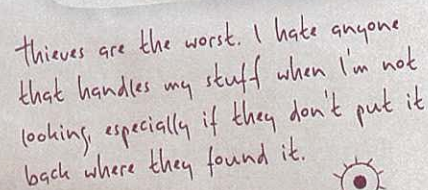 thieves are the worst. I hate anyone
that handles my stuff when I'm not
looking, especially if they don't put it
back where they found it.